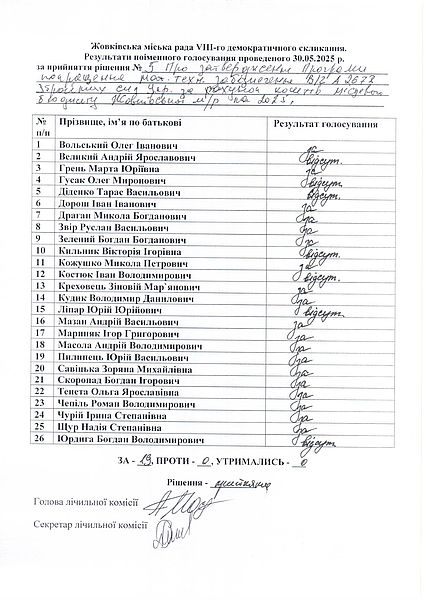 Жовківська міська рада VIII-го демократичного скликання.
Результати поіменного голосування проведеного 30.05.2025 р.
за прийняття рішення № 5 Про затвердження Програми
покращення мат. техн. забезпечення В/Ч А 2673
Збройних сил Укр. за рахунок коштів місцевого
бюджету Жовківської м/р на 2025 р.
№ п/п Прізвище, ім’я по батькові Результат голосування
1 Вольський Олег Іванович за
2 Великий Андрій Ярославович відсут.
3 Грень Марта Юріївна за
4 Гусак Олег Миронович відсут.
5 Діденко Тарас Васильович відсут.
6 Дорош Іван Іванович за
7 Драган Микола Богданович за
8 Звір Руслан Васильович за
9 Зелений Богдан Богданович за
10 Кильник Вікторія Ігорівна відсут.
11 Кожушко Микола Петрович за
12 Костюк Іван Володимирович відсут.
13 Креховець Зіновій Мар`янович за
14 Кудик Володимир Данилович за
15 Ліпар Юрій Юрійович відсут.
16 Мазан Андрій Васильович за
17 Мариняк Ігор Григорович за
18 Масола Андрій Володимирович за
19 Пилипець Юрій Васильович за
20 Савіцька Зоряна Михайлівна за
21 Скоропад Богдан Ігорович за
22 Тенета Ольга Ярославівна за
23 Чепіль Роман Володимирович за
24 Чурій Ірина Степанівна за
25 Щур Надія Степанівна за
26 Юрдига Богдан Володимирович відсут.
ЗА - 19, ПРОТИ - 0, УТРИМАЛИСЬ - 0
Рішення - прийняте
Голова лічильної комісії
Секретар лічильної комісії